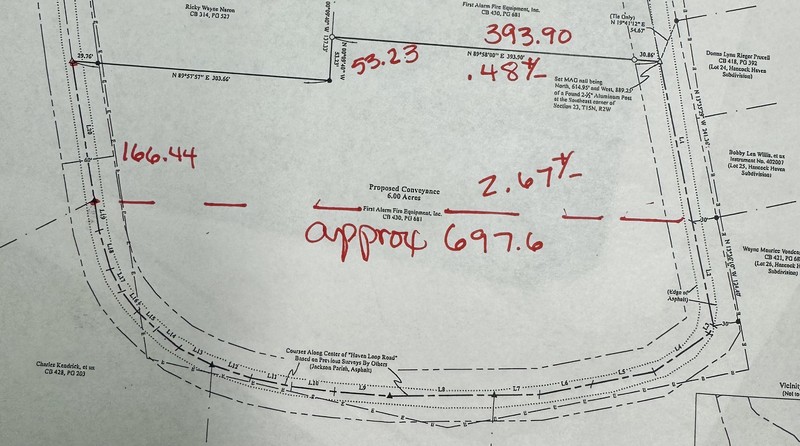 Ricky Wayne Naron
CB 314, PG 527
First Alarm Fire Equipment, Inc.
CB 430, PG 681
(Tie Only)
N 19°41'12" E
54.67'
393.90
29.76'
N 89°57'57" E 303.66'
53.23'
53.23
N 89°58'00" E 393.90'
30.86'
.48 +/-
Set MAG nail being
North, 614.95' and West, 889.25'
of a Found 2-½" Aluminum Post
at the Southeast corner of
Section 23, T15N, R2W
Donna Lynn Rieger Prucell
CB 418, PG 392
(Lot 24, Hancock Haven
Subdivision)
L20
L1
60'
166.44
Bobby Len Willis, et ux
Instrument No. 402007
(Lot 25, Hancock Haven
Subdivision)
Proposed Conveyance
6.00 Acres
2.67 +/-
First Alarm Fire Equipment, Inc.
CB 430, PG 681
L19
30'
approx 697.6
L18
L17
L16
L15
L14
L13
L12
L11
L10
L9
L8
L7
L6
L5
L4
L3
L2
Wayne Maurice
CB 421, PG
(Lot 26, Hancock H
Subdivision)
(Edge of
Asphalt)
30'
Courses Along Center of "Haven Loop Road"
Based on Previous Surveys By Others
(Jackson Parish, Asphalt)
Charles Kendrick, et ux
CB 428, PG 203
Vicinit
(Not to